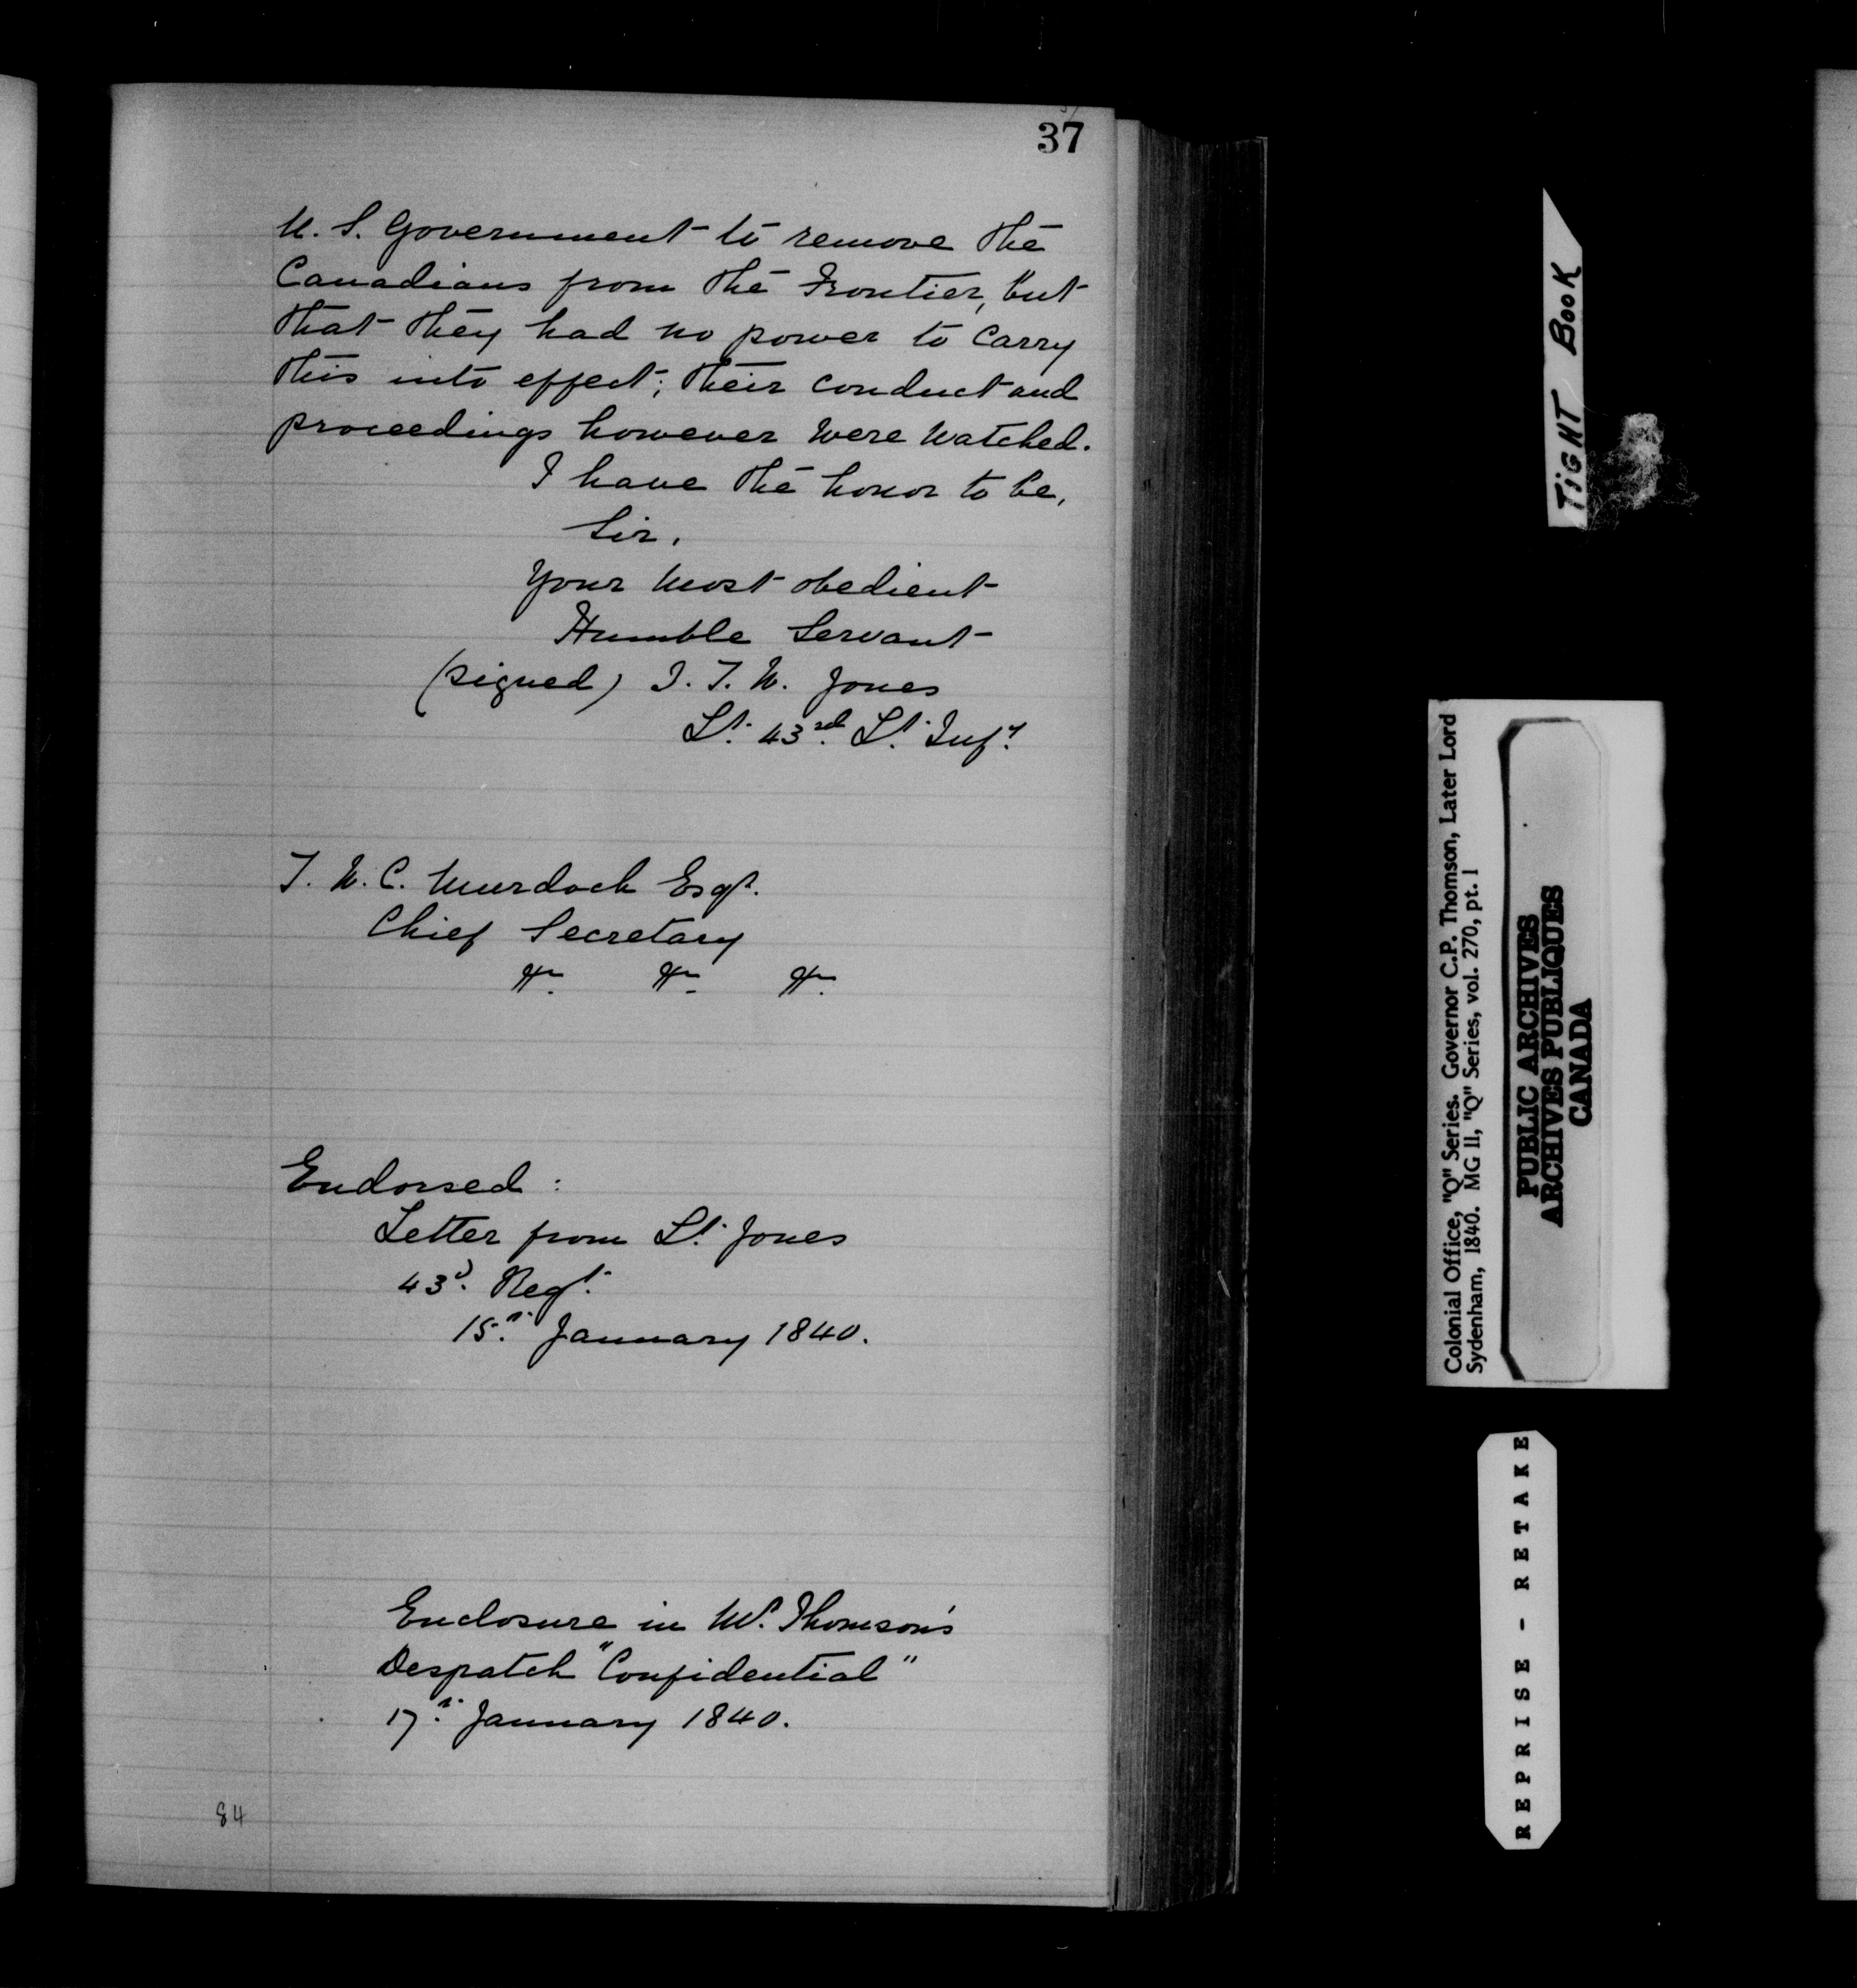 37
U. S. Government to remove the
Canadians from the Frontier, but
that they had no power to carry
this into effect; their conduct and
proceedings however were watched.
I have the honor to be,
Sir,
Your most obedient
Humble Servant
(signed) I. T. W. Jones
Lt. 43rd. Lt. Infy.
T. W. C. Murdoch Esqr.
Chief Secretary
&c. &c. &c.
Endorsed:
Letter from Lt. Jones
43d. Regt.
15th. January 1840.
Enclosure in Mr. Thomson's
Despatch "Confidential"
17th. January 1840.
84
TiGHT BOOK
Colonial Office, "Q" Series. Governor C.P. Thomson, Later Lord
Sydenham, 1840. MG 11, "Q" Series, vol. 270, pt. 1
PUBLIC ARCHIVES
ARCHIVES PUBLIQUES
CANADA
REPRISE - RETAKE